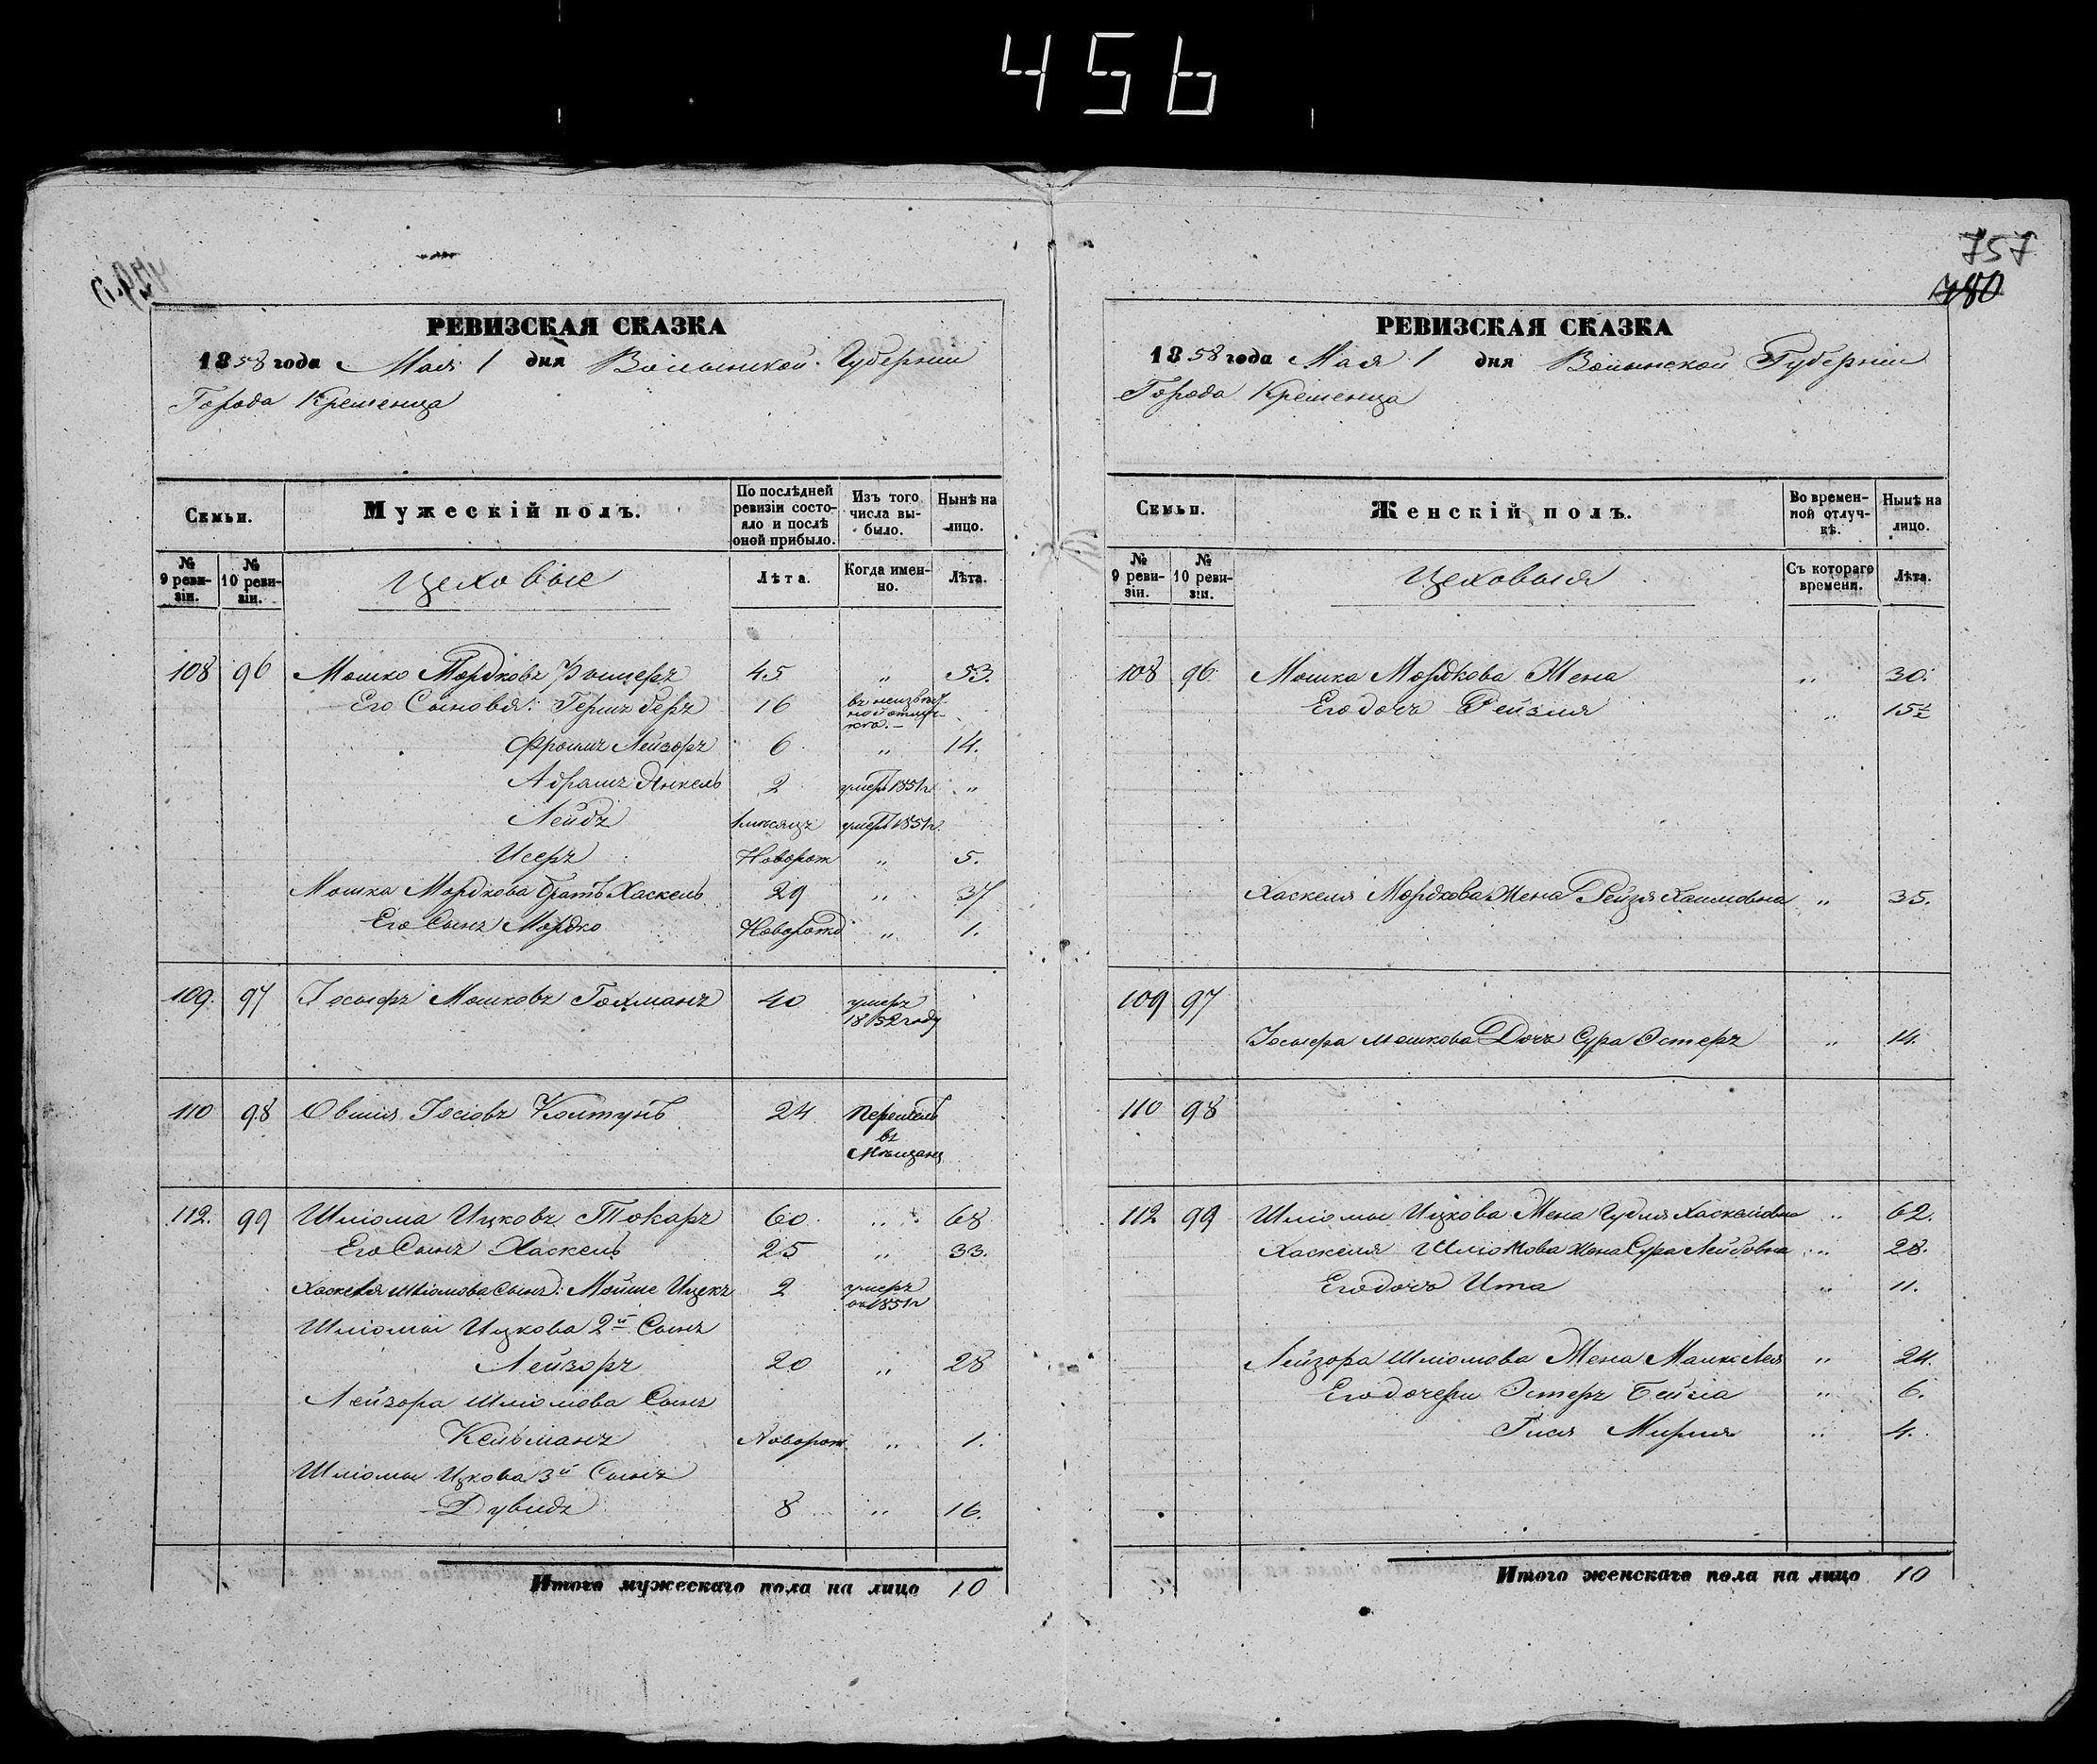 456
757
780
РЕВИЗСКАЯ СКАЗКА
1858 года Мая 1 дня Волынской Губернии
Города Кременца
Семьи.
Мужескій полъ.
По послѣдней ревизіи состояло и послѣ оной прибыло.
Изъ того числа выбыло.
Нынѣ на лицо.
№ 9 ревизіи.
№ 10 ревизіи.
Цеховые
Лѣта.
Когда именно.
Лѣта.
108 96 Мошко Мордковъ 45 " 53.
Его Сыновья: Герш Беръ 16 въ неизвѣстной отлучкѣ.
Фроимъ Лейзоръ 6 " 14.
Абрамъ Янкель 2 умеръ 1851 г. "
Лейбъ 1 мѣсяцъ умеръ 1851 г.
Исеръ Новорож " 5.
Мошка Мордкова братъ Хаскель 29 " 37
Его Сынъ Мордко Новорожд " 1.
109. 97 Іосыфъ Мошковъ Гохманъ 40 умеръ 1852 году
110 98 Овшия Іосіовъ Колтунъ 24 Перешелъ въ Мѣщаны
112. 99 Шліома Ицковъ Токаръ 60 " 68
Его Сынъ Хаскель 25 " 33.
Хаскеля Шліомова Сынъ: Мойше Ицекъ 2 умеръ 1851 г
Шліомы Ицкова 2й Сынъ
Лейзоръ 20 " 28
Лейзора Шліомова Сынъ
Кельманъ Новорож " 1.
Шліомы Ицкова 3й Сынъ
Дувидъ 8 " 16.
Итого мужескаго пола на лицо 10
РЕВИЗСКАЯ СКАЗКА
1858 года Мая 1 дня Волынской Губерніи
Города Кременца
Семьи.
Женскій полъ.
Во временной отлучкѣ.
Нынѣ на лицо.
№ 9 ревизіи.
№ 10 ревизіи.
Цеховыя
Съ котораго времени.
Лѣта.
108 96 Мошка Мордкова Жена " 30.
Его дочь Рейзля " 15½
Хаскеля Мордкова Жена Рейзя Хаимовна " 35.
109 97
Іосыфа Мошкова Дочь Сура Эстеръ " 14.
110 98
112 99 Шліомы Ицкова Жена Гудля Хаскелевна " 62.
Хаскеля Шліомова жена Сура Лейбовна " 28.
Его дочь Ита " 11.
Лейзора Шліомова Жена Малке Лея " 24.
Его дочери Эстеръ Бейла " 6.
Гися Мирля " 4.
Итого женскаго пола на лицо 10